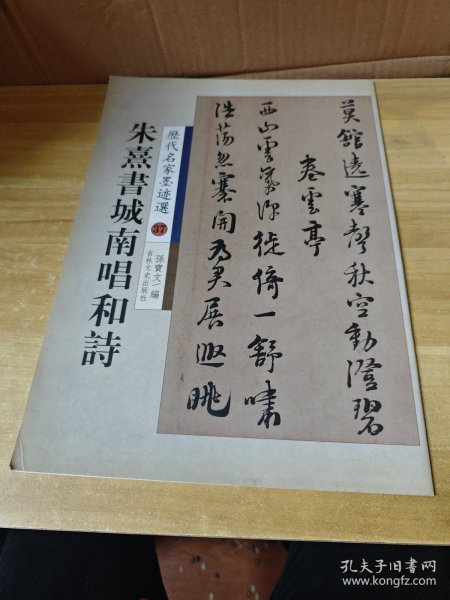 歷代名家墨迹選
37
孫寶文 編
吉林文史出版社
朱熹書城南唱和詩
莫館遶寒聲秋空動澄碧
卷雲亭
西山雲氣深徙倚一舒嘯
浩蕩忽褰開為君展遐眺
孔夫子旧书网
www.kongfz.com